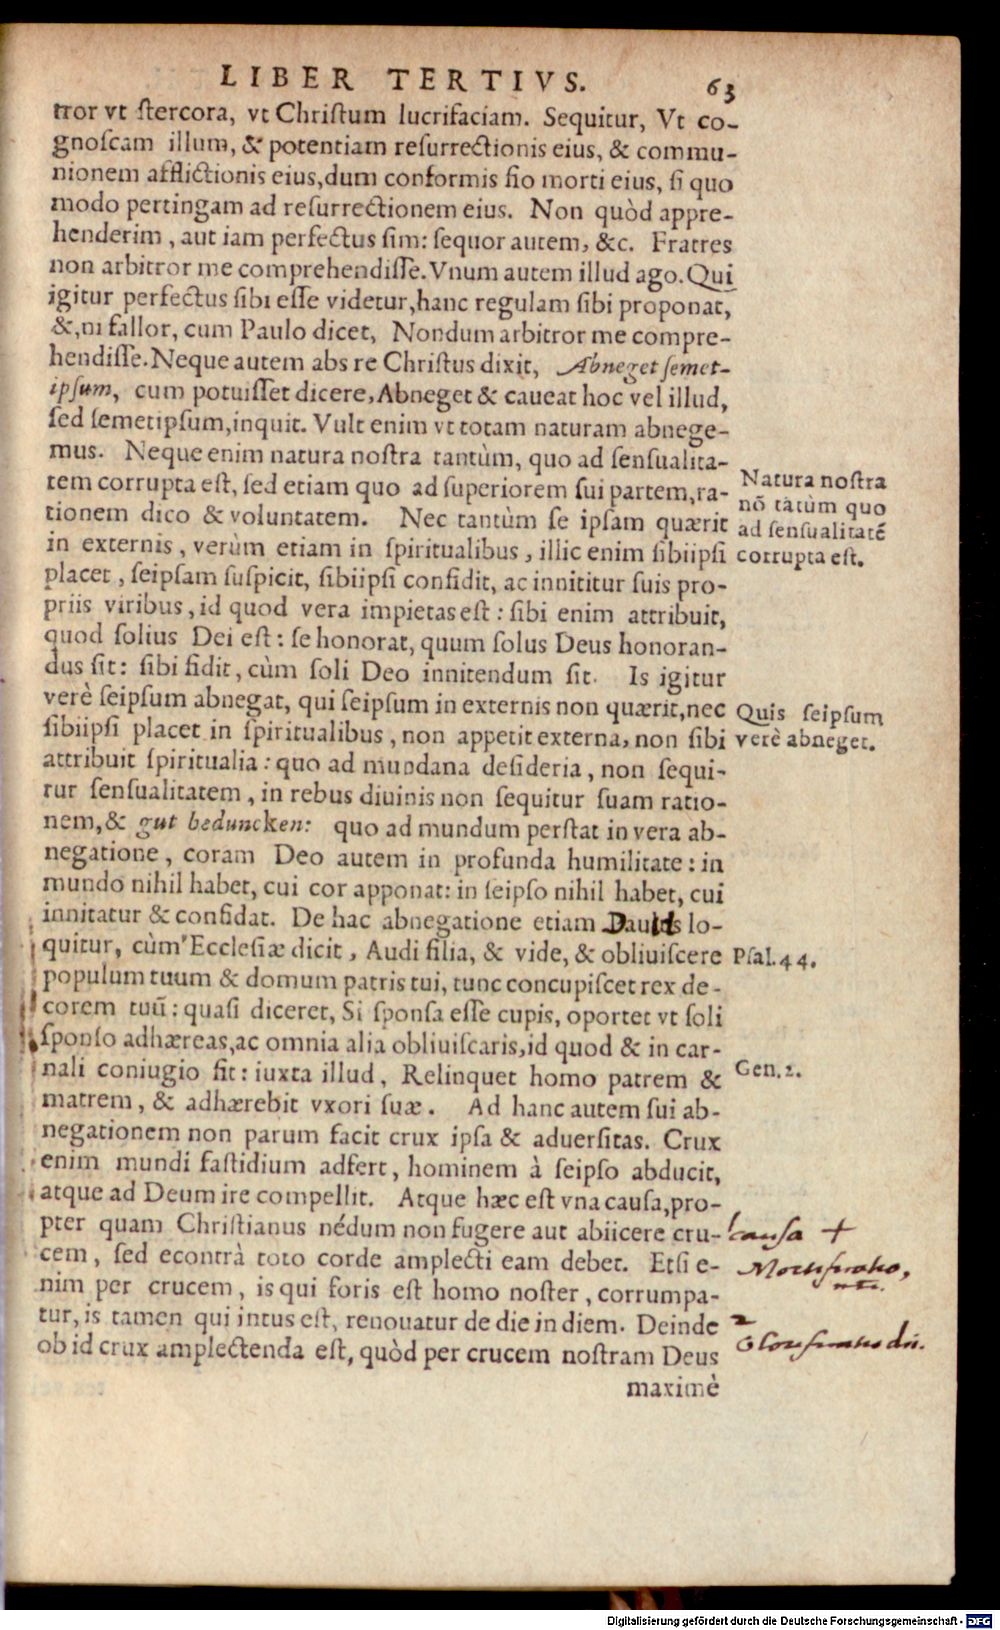 LIBER TERTIVS. 63
tror vt ſtercora, vt Chriſtum lucrifaciam. Sequitur, Vt co-
gnoſcam illum, & potentiam reſurrectionis eius, & commu-
nionem afflictionis eius, dum conformis fio morti eius, ſi quo
modo pertingam ad reſurrectionem eius. Non quòd appre-
henderim, aut iam perfectus ſim: ſequor autem, &c. Fratres
non arbitror me comprehendiſſe. Vnum autem illud ago. Qui
igitur perfectus ſibi eſſe videtur, hanc regulam ſibi proponat,
&, ni fallor, cum Paulo dicet, Nondum arbitror me compre-
hendiſſe. Neque autem abs re Chriſtus dixit, Abneget ſemet-
ipſum, cum potuiſſet dicere, Abneget & caueat hoc vel illud,
ſed ſemetipſum, inquit. Vult enim vt totam naturam abnege-
mus. Neque enim natura noſtra tantùm, quo ad ſenſualita-
tem corrupta eſt, ſed etiam quo ad ſuperiorem ſui partem, ra-
tionem dico & voluntatem. Nec tantùm ſe ipſam quærit
in externis, verùm etiam in ſpiritualibus, illic enim ſibiipſi
placet, ſeipſam ſuſpicit, ſibiipſi confidit, ac innititur ſuis pro-
priis viribus, id quod vera impietas eſt: ſibi enim attribuit,
quod ſolius Dei eſt: ſe honorat, quum ſolus Deus honoran-
dus ſit: ſibi fidit, cùm ſoli Deo innitendum ſit. Is igitur
verè ſeipſum abnegat, qui ſeipſum in externis non quærit, nec
ſibiipſi placet in ſpiritualibus, non appetit externa, non ſibi
attribuit ſpiritualia: quo ad mundana deſideria, non ſequi-
tur ſenſualitatem, in rebus diuinis non ſequitur ſuam ratio-
nem, & gut beduncken: quo ad mundum perſtat in vera ab-
negatione, coram Deo autem in profunda humilitate: in
mundo nihil habet, cui cor apponat: in ſeipſo nihil habet, cui
innitatur & confidat. De hac abnegatione etiam Dauids lo-
quitur, cùm Eccleſiæ dicit, Audi filia, & vide, & obliuiſcere
populum tuum & domum patris tui, tunc concupiſcet rex de-
corem tuū: quaſi diceret, Si ſponſa eſſe cupis, oportet vt ſoli
ſponſo adhæreas, ac omnia alia obliuiſcaris, id quod & in car-
nali coniugio fit: iuxta illud, Relinquet homo patrem &
matrem, & adhærebit vxori ſuæ. Ad hanc autem ſui ab-
negationem non parum facit crux ipſa & aduerſitas. Crux
enim mundi faſtidium adfert, hominem à ſeipſo abducit,
atque ad Deum ire compellit. Atque hæc eſt vna cauſa, pro-
pter quam Chriſtianus nédum non fugere aut abiicere cru-
cem, ſed econtrà toto corde amplecti eam debet. Etſi e-
nim per crucem, is qui foris eſt homo noſter, corrumpa-
tur, is tamen qui intus eſt, renouatur de die in diem. Deinde
ob id crux amplectenda eſt, quòd per crucem noſtram Deus
maximè
Natura noſtra
nō tātùm quo
ad ſenſualitatē
corrupta eſt.
Quis ſeipſum
verè abneget.
Pſal. 44.
Gen. 2.
causa +
Mortificatio
2
Glorificatio
Digitalisierung gefördert durch die Deutsche Forschungsgemeinschaft - DFG